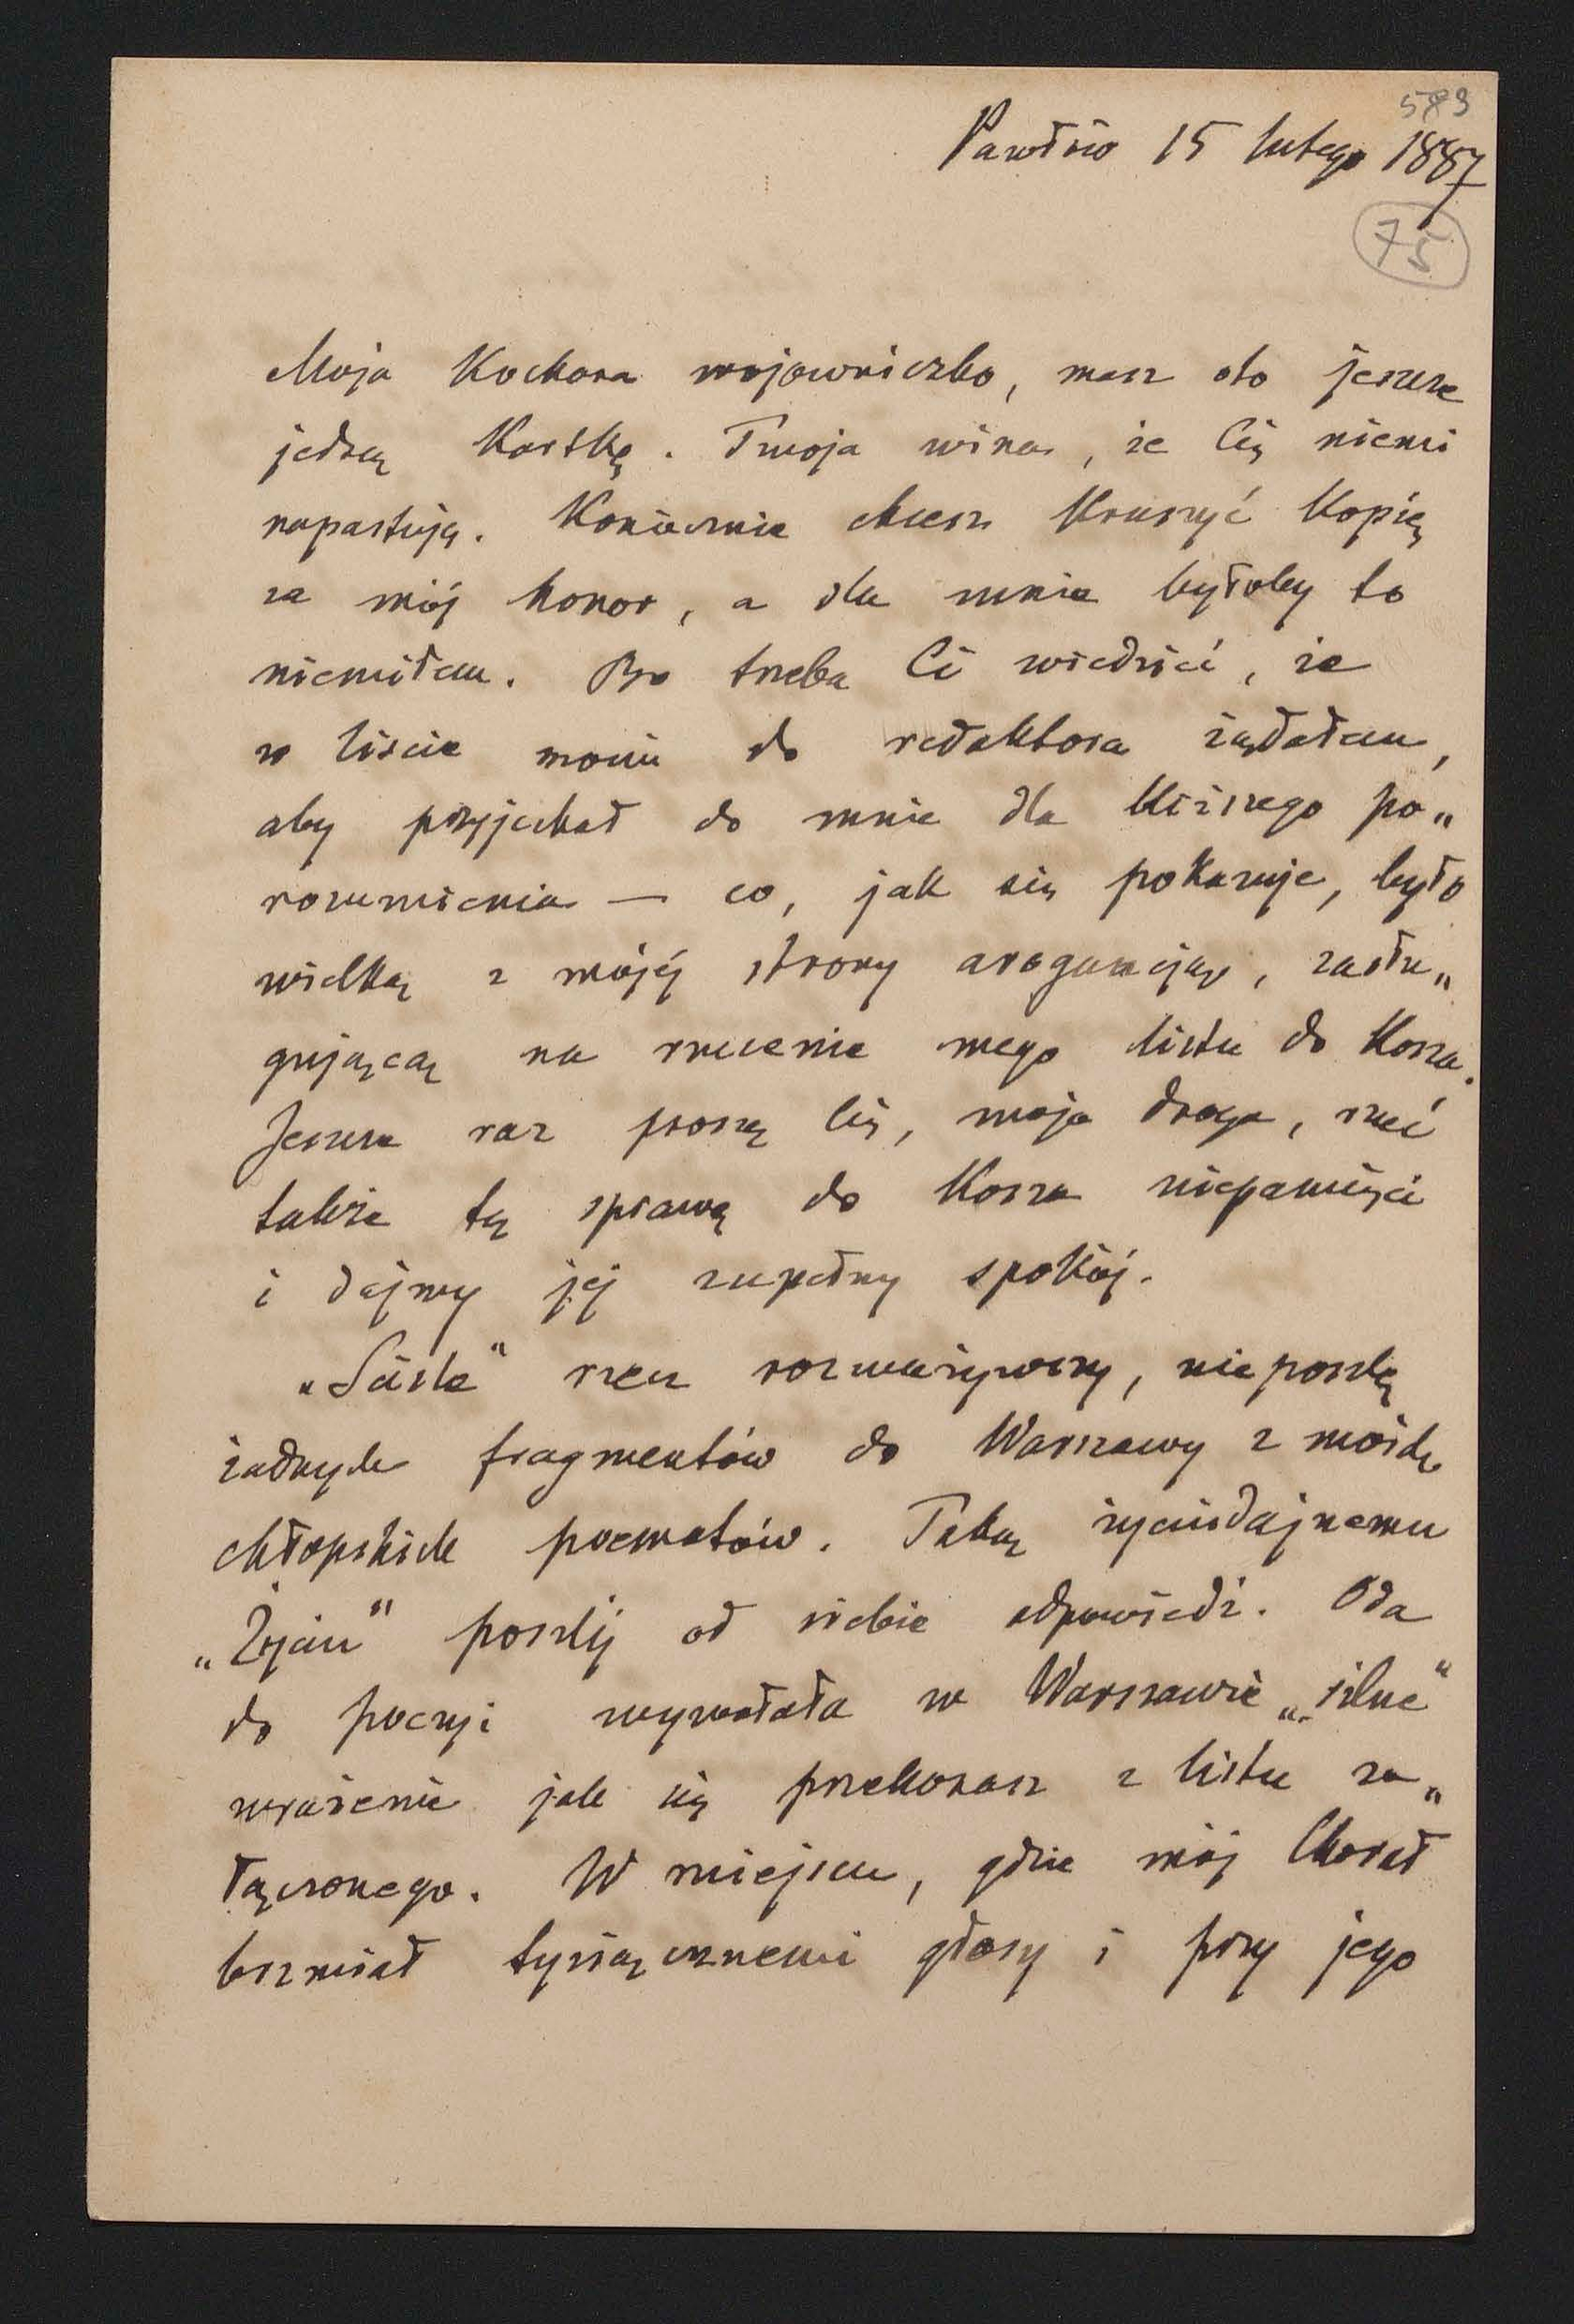 589
Pawłów 15 lutego 1887
75
Moja Kochana wojowniczko, masz oto jeszcze
jedną Kartkę. Twoja wina, że Cię niemi
napastuję. Koniecznie chcesz Kruszyć Kopię
za mój honor, a dla mnie byłoby to
niemiłem. Bo trzeba Ci wiedzieć, że
w liście moim do redaktora żądałem,
aby przyjechał do mnie dla bliższego po„
rozumienia — co, jak się pokazuje, było
wielką z mojéj strony arogancją, zasłu„
gującą na rzucenie mego listu do Kosza.
Jeszcze raz proszę Cię, moja droga, rzuć
także tę sprawę do Kosza niepamięci
i dajmy jej zupełny spokój.
„Ściśle" rzecz rozważywszy, nie poszlę
żadnych fragmentów do Warszawy z moich
chłopskich poematów. Taką życiodajnemu
„Życiu" poszlij od siebie odpowiedź. Oda
do poezyi wywołała w Warszawie „silne"
wrażenie jak się przekonasz z listu za„
łączonego. W miejscu, gdzie mój Chorał
brzmiał tysiącznemi głosy i przy jego